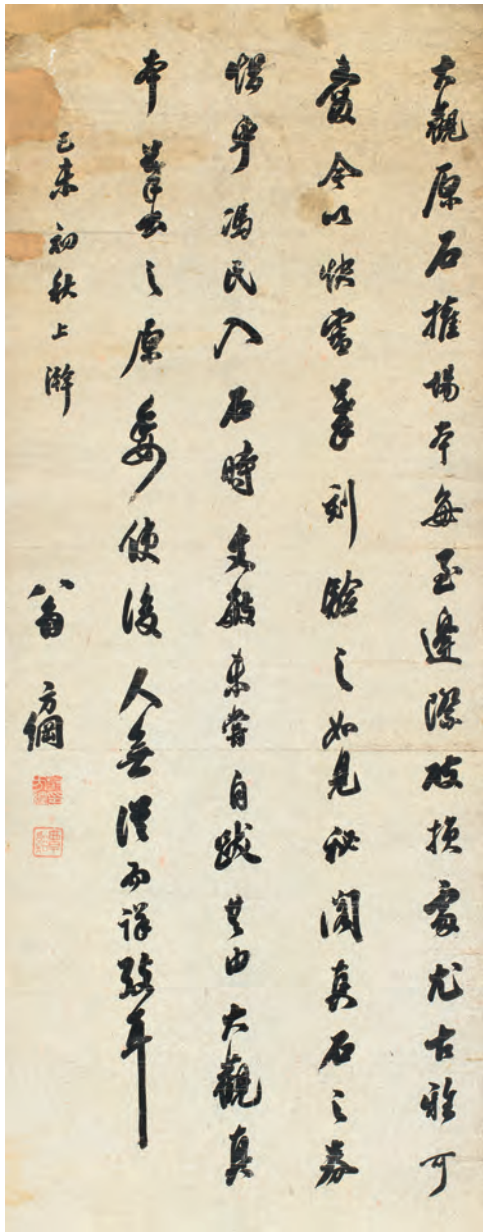 大觀原石搉場本每至邊際破損處尤古雅可
愛今以快雪摹刻驗之如見秘閣真石之券
惜乎馮氏入石時文敏未嘗自跋其由大觀真
本摹出之原委使後人無從而詳孜耳
己未初秋上澣
翁方綱